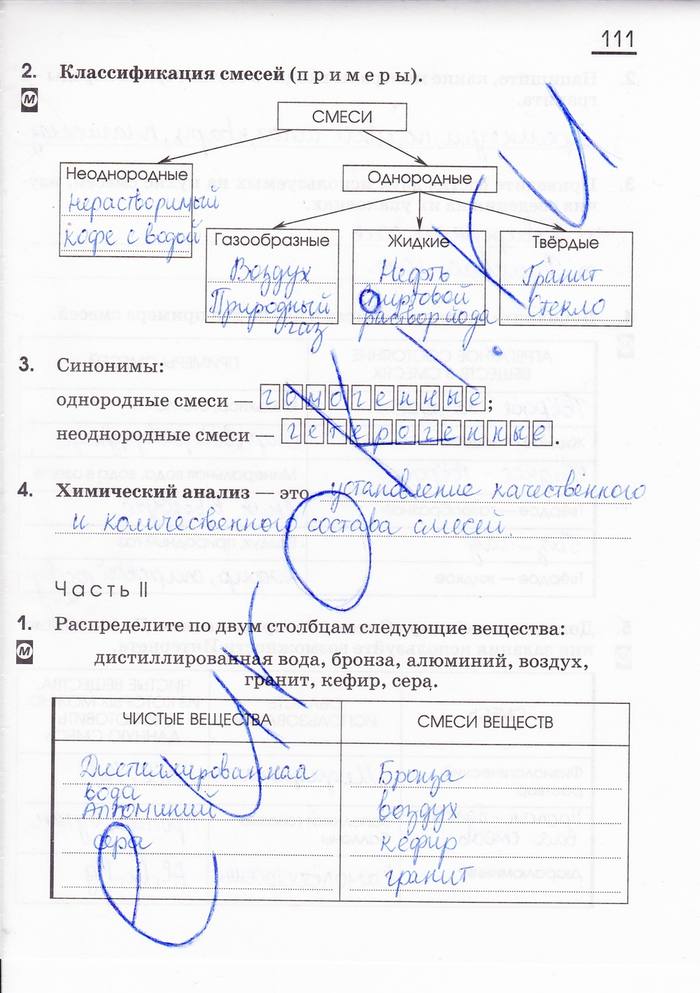 111
2. Классификация смесей (примеры).
М
СМЕСИ
Неоднородные
Однородные
нерастворимый
кофе с водой
Газообразные
Жидкие
Твёрдые
Воздух
Природный
газ
Нефть
Спиртовой
раствор йода
Гранит
Стекло
3. Синонимы:
однородные смеси — гомогенные;
неоднородные смеси — гетерогенные.
4. Химический анализ — это установление качественного
и количественного состава смесей.
Часть II
1. Распределите по двум столбцам следующие вещества:
М
дистиллированная вода, бронза, алюминий, воздух,
гранит, кефир, сера.
ЧИСТЫЕ ВЕЩЕСТВА
СМЕСИ ВЕЩЕСТВ
Дистиллированная
вода
Алюминий
сера
Бронза
воздух
кефир
гранит